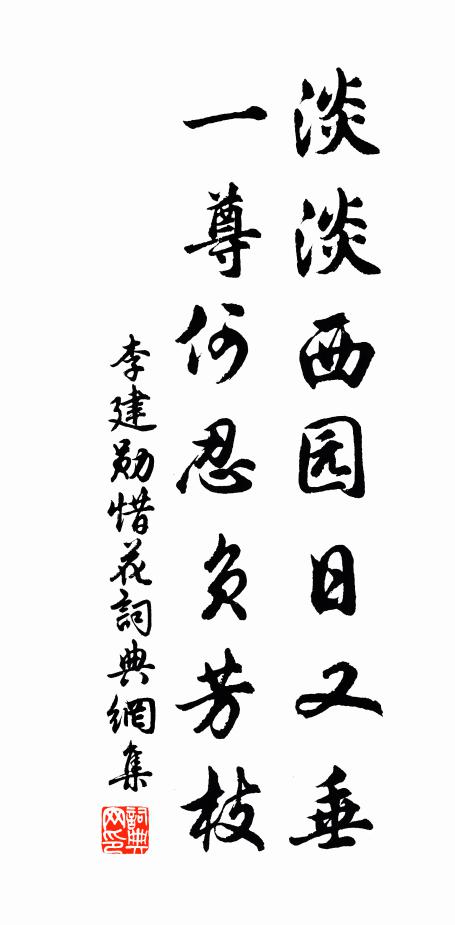 淡淡西园日又垂
一尊何忍负芳枝
李建勋惜花詞典網集
詞典网印